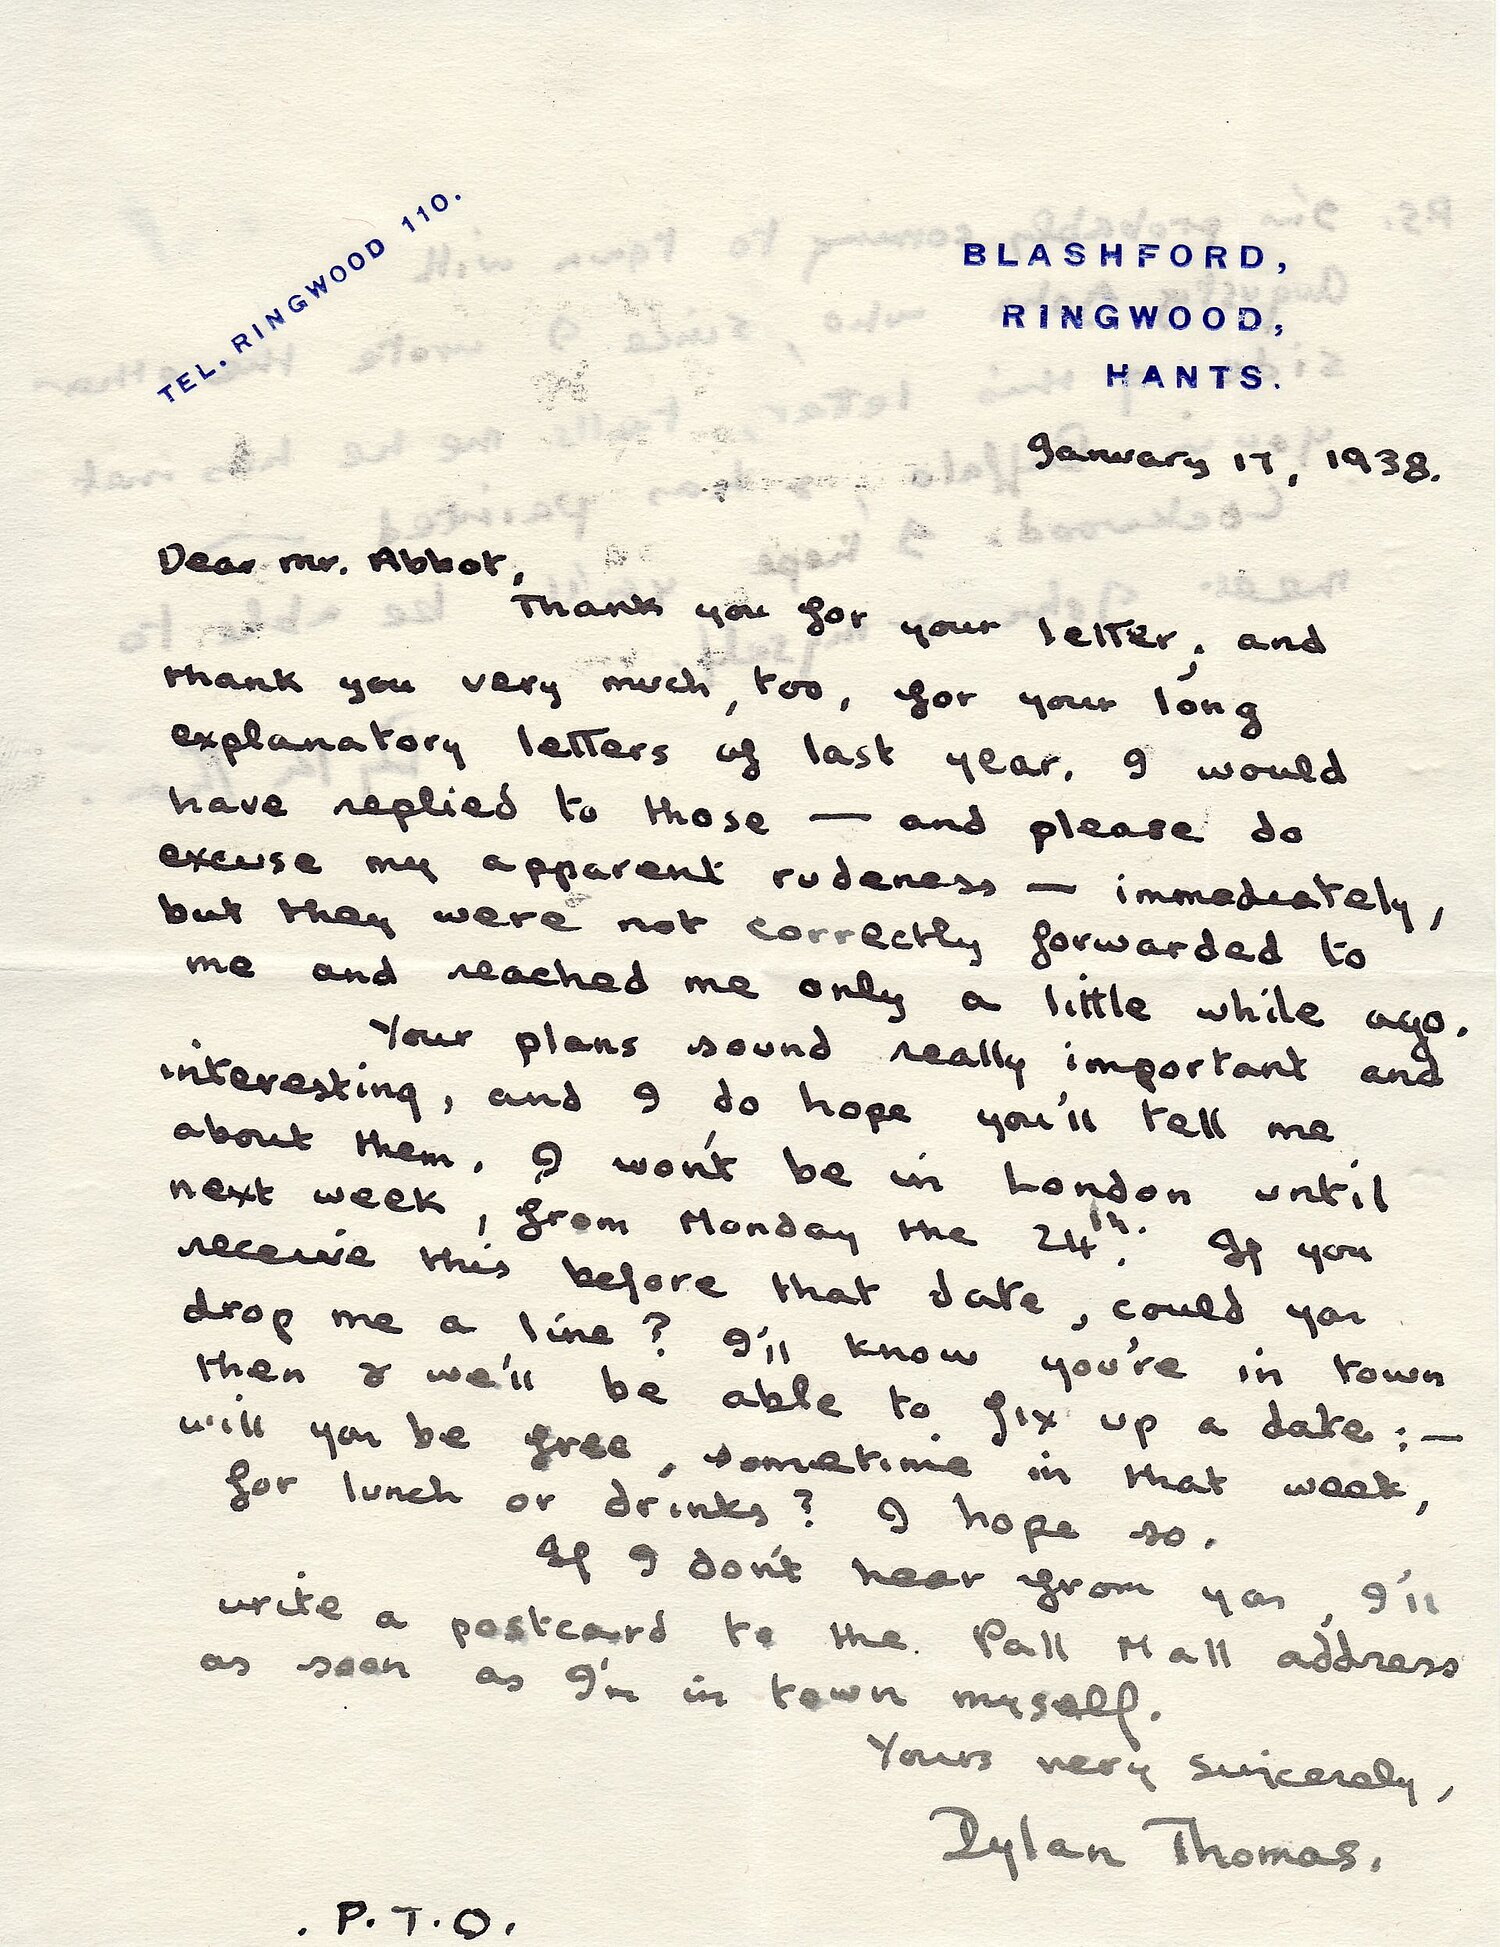 TEL. RINGWOOD 110.
BLASHFORD,
RINGWOOD,
HANTS.
January 17, 1938.
Dear Mr. Abbot,
Thank you for your letter, and
thank you very much, too, for your long
explanatory letters of last year. I would
have replied to those — and please do
excuse my apparent rudeness — immediately,
but they were not correctly forwarded to
me and reached me only a little while ago.
Your plans sound really important and
interesting, and I do hope you'll tell me
about them. I won't be in London until
next week, from Monday the 24th. If you
receive this before that date, could you
drop me a line? I'll know you're in town
then & we'll be able to fix up a date:—
will you be free, sometime in that week,
for lunch or drinks? I hope so.
If I don't hear from you, I'll
write a postcard to the Pall Mall address
as soon as I'm in town myself.
Yours very sincerely,
Dylan Thomas.
. P.T.O.
P.S. I'm probably coming to town with
Augustus who, since I wrote the other
side this letter, tells me he has not
painted
Lockwood. I hope you'll be able to
myself.